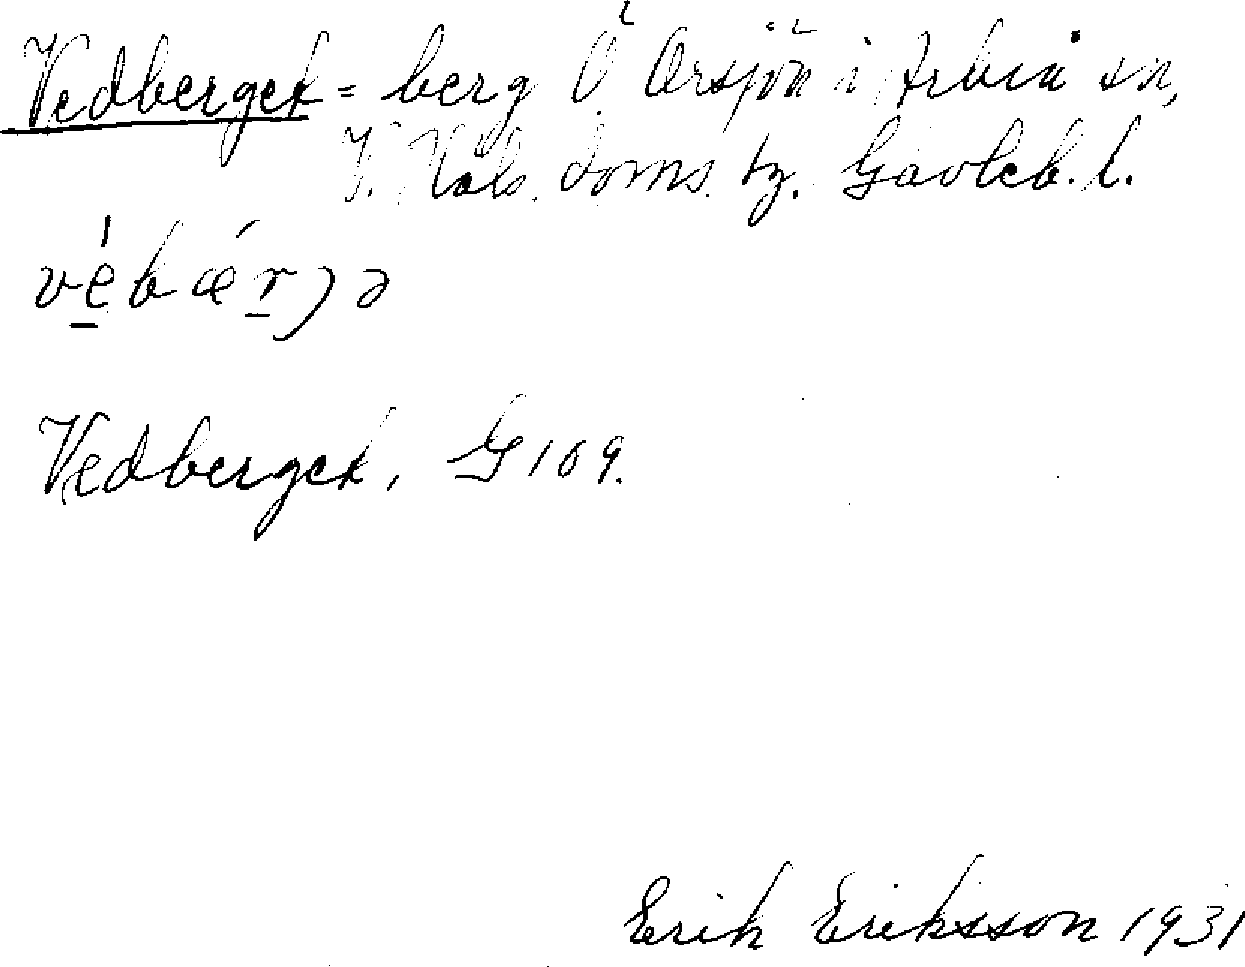 Vedberget = berg Ö Örsjön i Arbrå sn,
V. Häls. doms. tg. Gävleb. l.
vèbǽrjə
Vedberget, G 109.
Erik Eriksson 1931